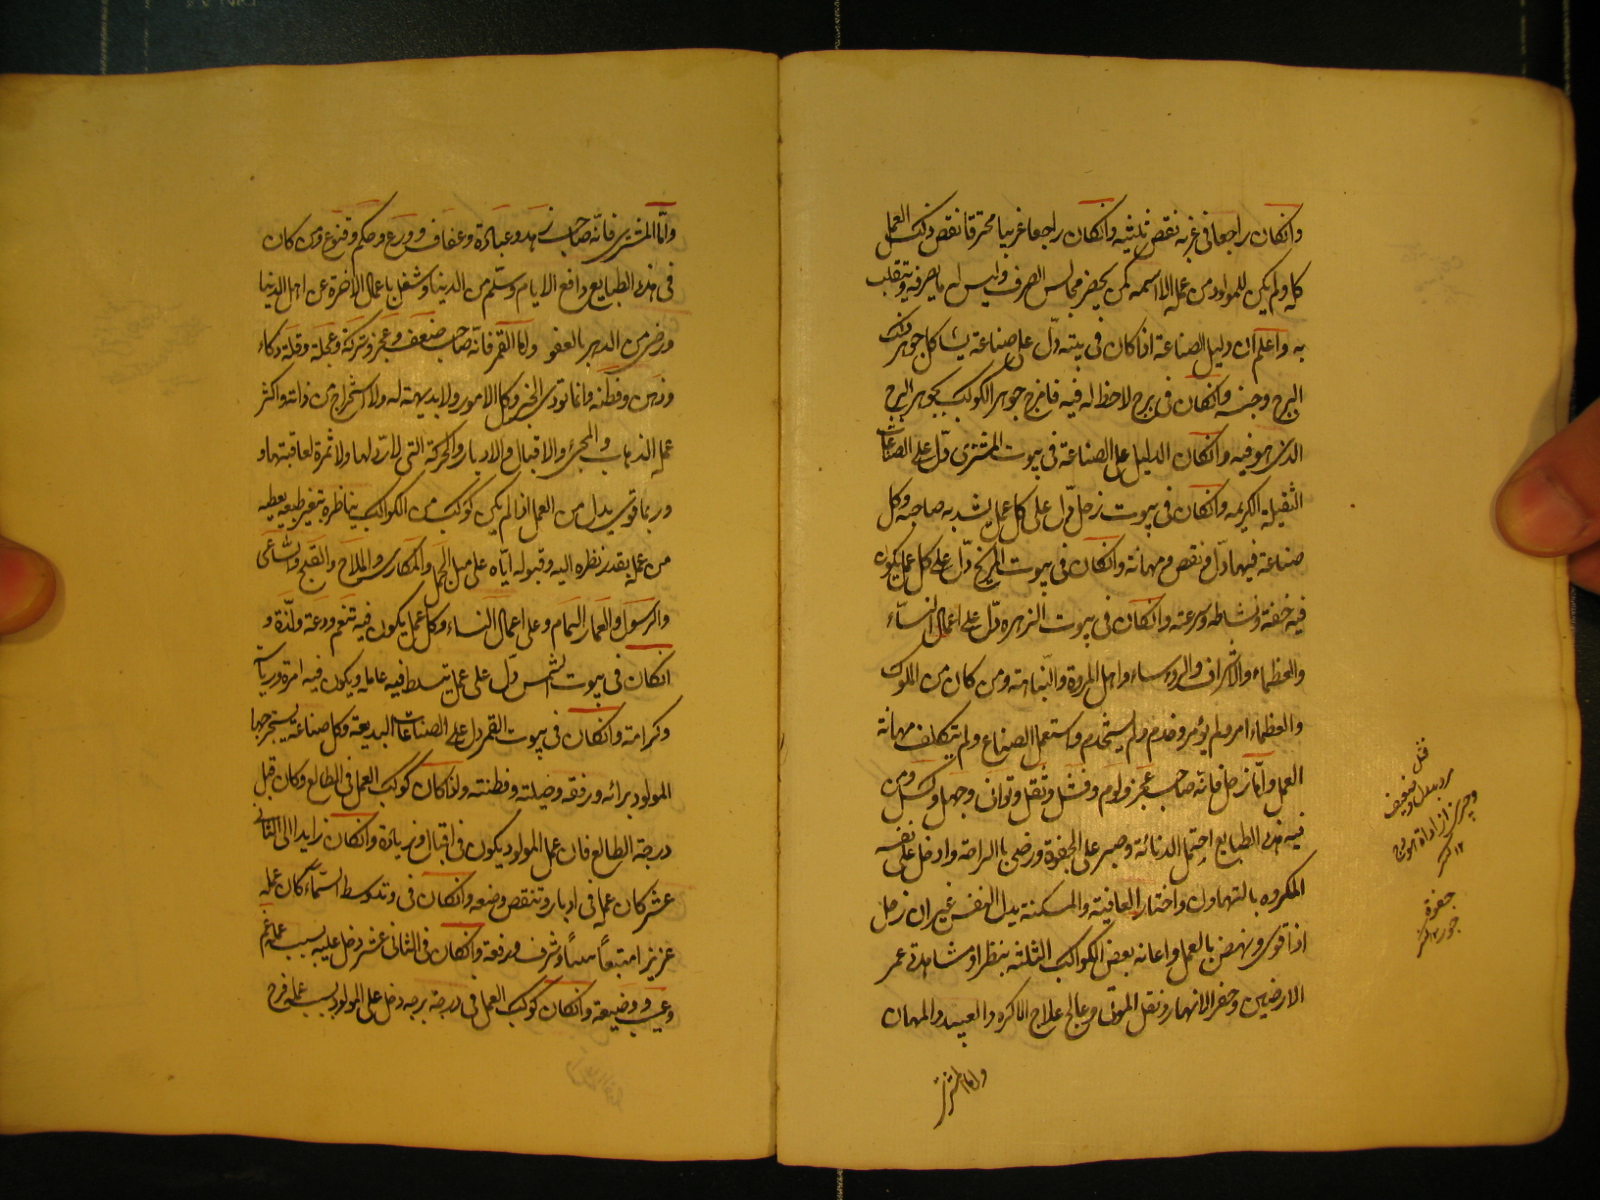 وانكان راجعا فى غربه نقص ثلثيه وانكان راجعا غربيا محترقا نقص ذلك العمل
كله ولم يكن للمولود من عمله الا اسمه كمن يحضر مجالس الصرف وليس له ما يصرفه ويتقلب
به واعلم ان دليل الصناعة اذا كان فى بيته دل على صناعة يشاكل جوهر ذلك
البرج وجنسه وانكان فى برج لاحظ له فيه فامزج جوهر الكوكب بجوهر البرج
الذى هو فيه وانكان الدليل على الصناعة فى بيوت المشترى دل على الصناعات
الثقيلة الكريمه وانكان فى بيوت زحل دل على كل عمل يشد به صاحبه وكل
صناعة فيها ذل ونقص ومهانة وانكان فى بيوت المريخ دل على كل عمل يكون
فيه خفة ونشاطه وسرعته وانكان فى بيوت الزهره دل على اعمال النساء
والعظماء والاشراف والروساء واهل المروة والنباهة ومن كان من الملوك
والعظماء امر ولم يؤمر وخدم ولم يستخدم واستعمل الصناع ولم يتكلف مهانة
العمل واما زحل فانه صاحب عجز ولوم وفشل وثقل وتوانى وجهل وكسل ومن
فيه هذه الطبايع احتمل الدنائة وصبر على الجفوة ورضى بالراحة وادخل على نفسه
المكروه بالتهاون واختار العافية والمسكنة بدل النفس غير ان زحل
اذا قوى ونهض بالعمل واعانه بعض الكواكب الثلثة بنظر او مشاهدة عمر
الارضين وحفر الانهار ونقل الموتى وعالج علاج الاكره والعبيد والمهان
واما المشترى
جفوة
واما المشترى فانه صاحب زهد وعبادة وعفاف وورع وحكم وقنوع ومن كان
فى هذه الطبايع دافع الايام وسلم من الدنيا وشغل باعمال الاخرة عن اهل الدنيا
ورضى من الدهر بالعفو واما القمر فانه صاحب ضعف وعجز وتركة وعجلة وقلة ذكاء
وذهن وفطنه فانما تودى الخبر وكل الامور ولا بديهة له ولا استخراج من ذاته واكثر
عمله الذهاب والمجئ والاقبال والادبار والحركة التى لا رد لها ولا ثمرة لعاقبتها و
وربما قوى يدل من العمل اذا لم يكن كوكب من الكواكب يناظره بتغير طبعه يعطيه
من عمل بقدر نظره اليه وقبوله اياه على مثل الحمال والمكارى والملاح والفيج والساعى
والرسول والعمار الحمام وعلى اعمال النساء وكل عمل يكون فيه تنعم ودعة ولذة و
انكان فى بيوت الشمس دل على عمل يتسلط فيه عامله ويكون فيه امرة ورياسة
وكرامة وانكان فى بيوت القمر دل على الصناعات البديعة وكل صناعة يستخرجها
المولود برائه ورفقه وحيلته وفطنته واذا كان كوكب العمل فى الطالع وكان قبل
درجة الطالع فان عمل المولود يكون فى اقبال وزيادة وانكان زايدا الى الثانى
عشر كان عمله فى ادبار وتنقص وضعه وانكان فى وتد وسط السماء كان عمله
عزيزا منيعا سنيا وشرف ورفعة وانكان فى الثانى عشر دخل عليه بسبب عمله غم
وعيب ووضيعة وانكان كوكب العمل فى درجة برجه دخل على المولود بسبب عمله فرح